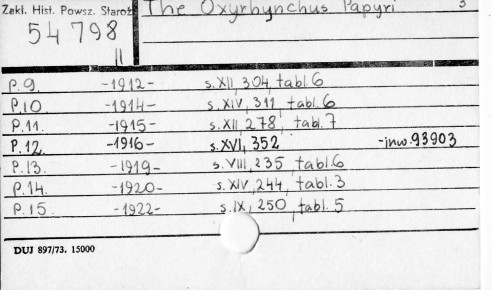 Zakł. Hist. Powsz. Staroż The Oxyrhynchus Papyri 3
54 798
II
P.9. -1912- s.XII, 304, tabl.6
P.10 -1914- s.XIV, 311, tabl.6
P.11. -1915- s.XII 278, tabl.7
P.12. -1916- s.XVI, 352 -inw.93903
P.13. -1919- s.VIII, 235, tabl.6
P.14. -1920- s.XIV, 244, tabl.3
P.15. -1922- s.IX, 250, tabl.5
DUJ 897/73. 15000